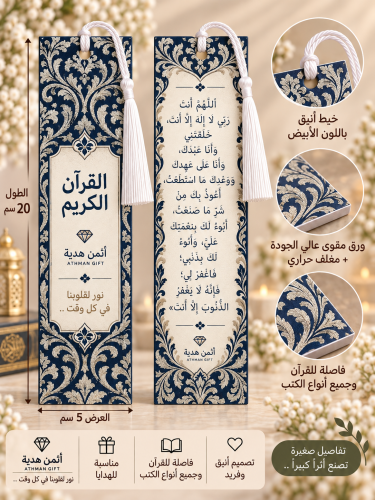 القرآن
الكريم
أثمن هدية
ATHMAN GIFT
نور لقلوبنا
في كل وقت ..
اَللَّهُمَّ أَنتَ
رَبِّي لَا إِلٰهَ إِلَّا أَنتَ،
خَلَقْتَنِي
وَأَنَا عَبْدُكَ،
وَأَنَا عَلَى عَهْدِكَ
وَوَعْدِكَ مَا اسْتَطَعْتُ،
أَعُوذُ بِكَ مِنْ
شَرِّ مَا صَنَعْتُ،
أَبُوءُ لَكَ بِنِعْمَتِكَ
عَلَيَّ، وَأَبُوءُ
لَكَ بِذَنْبِي؛
فَاغْفِرْ لِي؛
فَإِنَّهُ لَا يَغْفِرُ
الذُّنُوبَ إِلَّا أَنتَ»
أثمن هدية
ATHMAN GIFT
خيط أنيق
باللون الأبيض
ورق مقوى عالي الجودة
+ مغلف حراري
فاصلة للقرآن
وجميع أنواع الكتب
الطول
20 سم
العرض 5 سم
تصميم أنيق
وفريد
فاصلة للقرآن
وجميع أنواع الكتب
مناسبة
للهدايا
أثمن هدية
ATHMAN GIFT
نور لقلوبنا في كل وقت ..
تفاصيل صغيرة
تصنع أثراً كبيراً ..